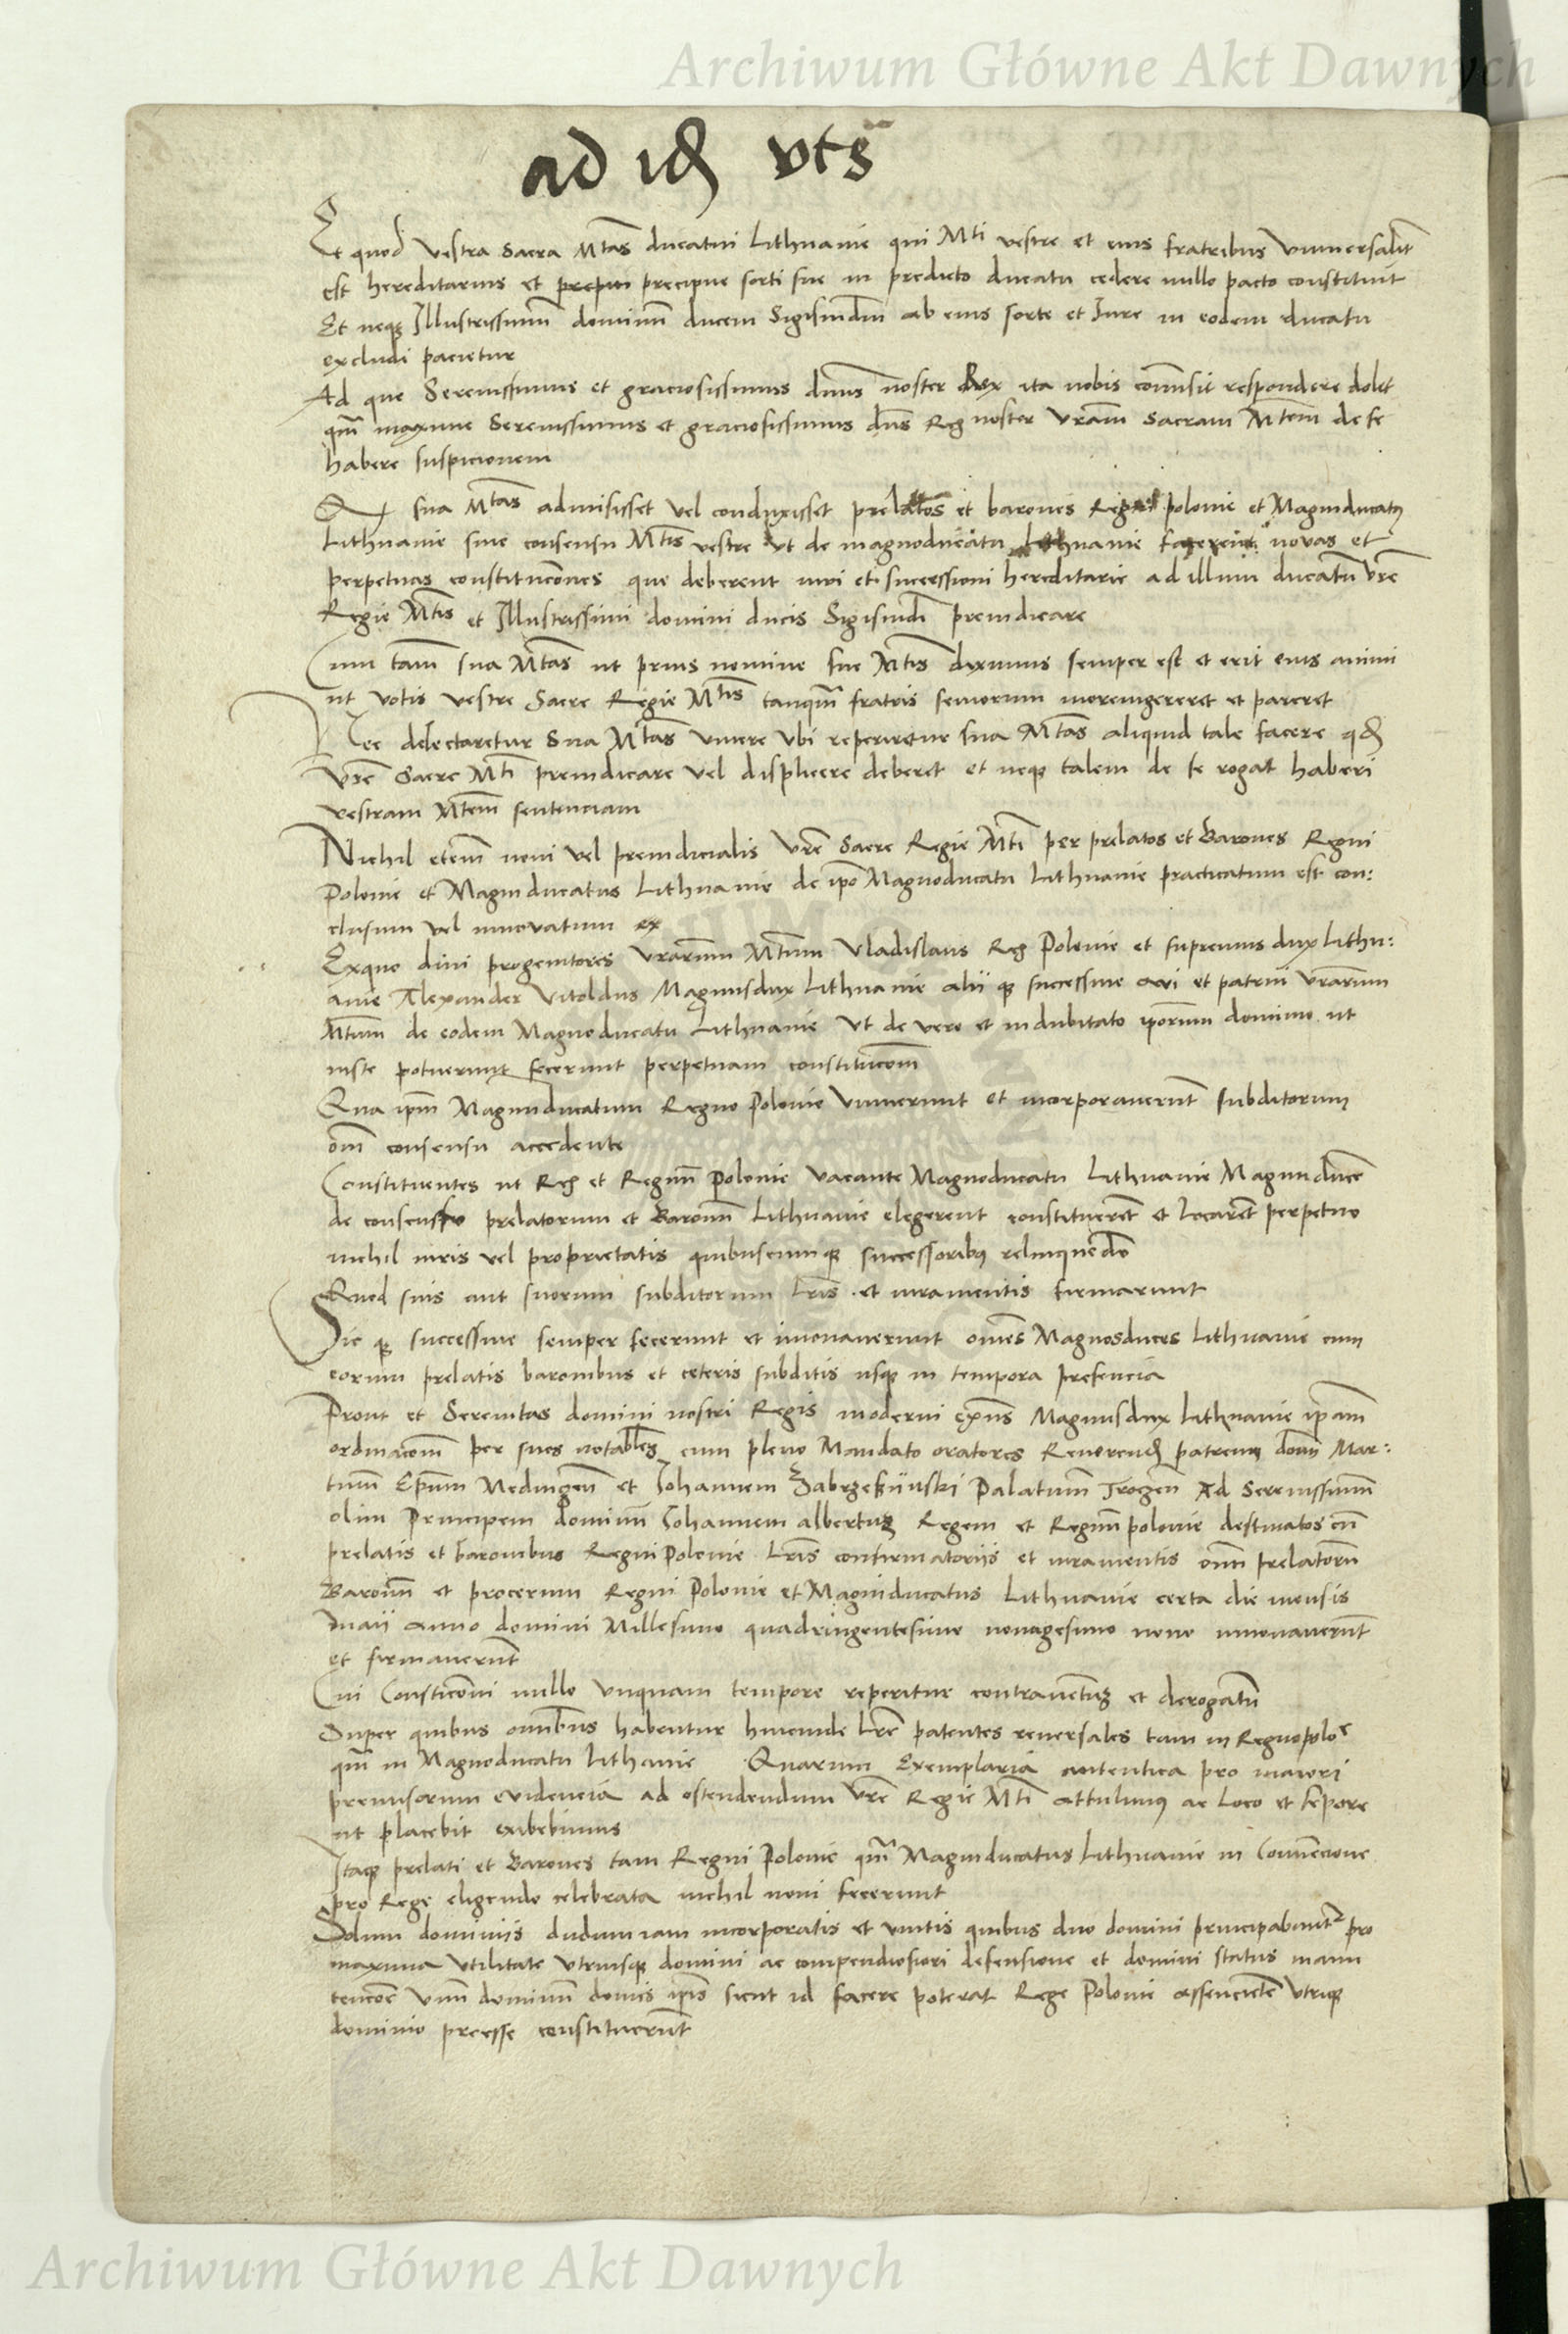 Archiwum Główne Akt Dawnych
ad id vts
Et quod vestra Sacra Mtas ducatui Lithuanie qui Mti vestre et eius fratribus vniuersalit
est hereditarius et precipue sorti sue in predicto ducatu cedere nullo pacto constituit
Et neq Illustrissimum dominum ducem Sigismdm ab eius sorte et Iure in eodem ducatu
excludi pacietur
Ad que Serenissimus et graciosissimus dnus noster Rex ita nobis comisit respondere dolet
qm maxime Serenissimus et graciosissimus dns Rex noster vram Sacram Mtem de se
habere suspicionem
Q sua Mtas admisisset vel conduxisset prelatos et barones Regni polonie et Magniducatus
Lithuanie sine consensu Mtis vestre vt de magnoducatu Lithuanie facerent novas et
perpetuas constituciones que deberent iuri et successioni hereditarie ad illum ducatum vre
Regie Mtis et Illustrissimi domini ducis Sigismdi preiudicare
Cum tam sua Mtas ut prius nomine sue Mtis diximus semper est et erit eius animi
ut votis vestre Sacre Regie Mtis tanqm fratris seniorum moremgereret et pareret
Nec delectaretur Sua Mtas viuere vbi reperiretur sua Mtas aliquid tale facere qd
vre Sacre Mti preiudicare vel displicere deberet et neq talem de se rogat haberi
vestram Mtem sentenciam
Nichil etem noui vel preiudicialis vre Sacre Regie Mti per prelatos et Barones Regni
Polonie et Magniducatus Lithuanie de ipo Magnoducatu Lithuanie practicatum est con:
clusum vel innovatum ex
Exquo diui progenitores vrarum Mtum Vladislaus Rex Polonie et supremus dux Lithu:
anie Alexander Vitoldus Magnusdux Lithuanie alii q successiue avi et patrui vrarum
Mtum de eodem Magnoducatu Lithuanie vt de vero et indubitato iporum dominio ut
iuste potuerunt fecerunt perpetuam constitucom
Qua ipm Magnumducatum Regno Polonie vnierunt et incorporauerunt subditorum
om consensu accedente
Constituentes ut Rex et Regnum Polonie vacante Magnoducatu Lithuanie Magnumducem
de consensu prelatorum et Baronum Lithuanie elegerent constituerent et locarent perpetuo
nichil iuris vel proprietatis quibuscumq successoribus relinquendo
Quod suis aut suorum subditorum Lris et iuramentis firmarunt
Sic q successiue semper fecerunt et innouauerunt omes Magnosduces Lithuanie cum
eorum prelatis baronibus et ceteris subditis usq in tempora presencia
Prout et Serenitas domini nostri Regis moderni exns Magnusdux Lithuanie ipam
ordinacom per suos notabiles cum pleno Mandato oratores Reuerend patrem dom Mar:
tinum Epum Medingen et Iohannem Zabrzeziinski Palatinum Trocen Ad Serenissimum
olim Principem dominum Iohannem albertum Regem et Regnum polonie destinatos cum
prelatis et baronibus Regni Polonie Lris confirmatoriis et iuramentis omn prelatorum
Baronum et procerum Regni Polonie et Magniducatus Lithuanie certa die mensis
Maii anno domini Millesimo quadringentesimo nonagesimo nono innouauerunt
et firmauerunt
Cui Consticoni nullo vnquam tempore reperitur contrauentum et derogatum
Super quibus omnibus habentur hincinde Lre patentes reuersales tam in Regno polo
qm in Magnoducatu Lithanie Quarum Exemplaria autentica pro maiori
premissorum euidencia ad ostendendum vre Regie Mti attulimus ac loco et tepore
ut placebit exibebimus
Itaq prelati et Barones tam Regni Polonie qm Magniducatus Lithuanie in Conuencione
pro Rege eligendo celebrata nichil noui fecerunt
Solum dominiis dudum iam incorporatis et vnitis quibus duo domini principabuntr pro
maxima vtilitate vtriusq domini ac compendiosiori defensione et domini status manu
tencoe vnum dominum domis ipis sicut id facere poterat Rege Polonie assenciente vtriq
dominio preesse constituerunt
Archiwum Główne Akt Dawnych